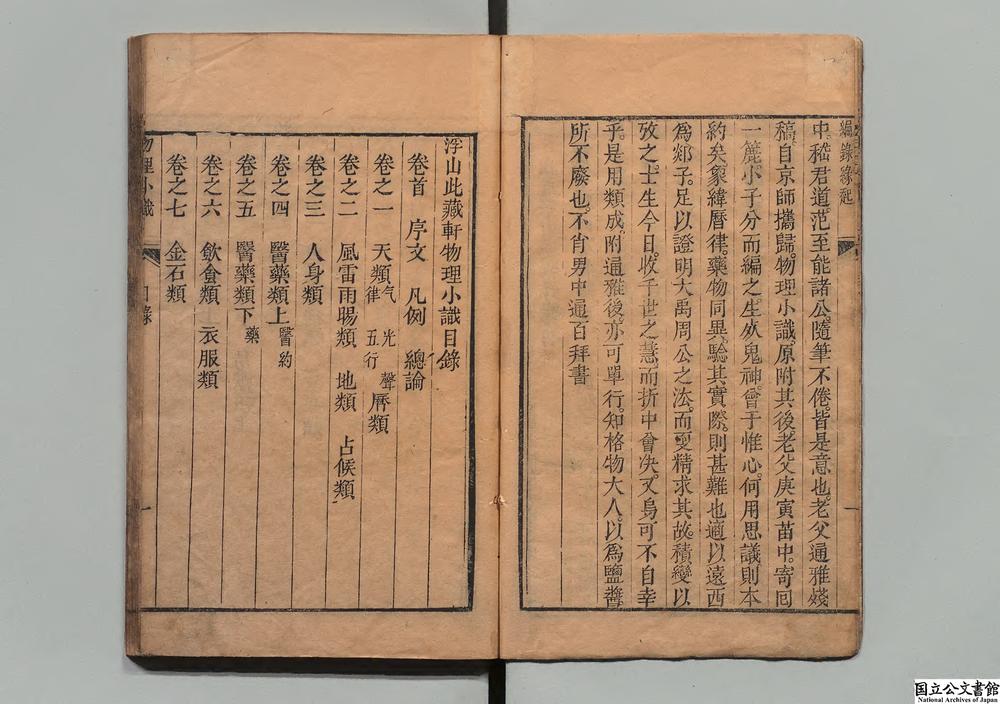 編錄緣起
中、嵇君道、范至能諸公、隨筆不倦、皆是意也。老父通雅殘
稿、自京師攜歸、物理小識、原附其後、老父庚寅苗中、寄囘
一簏、小子分而編之、生死鬼神、會于惟心、何用思議、則本
約矣、象緯曆律、藥物同異、驗其實際、則甚難也、適以遠西
爲郯子、足以證明大禹周公之法、而更精求其故、積變以
攷之、士生今日、收千世之慧、而折中會決、又烏可不自幸
乎。是用類成、附通雅後、亦可單行、知格物大人、以爲鹽醬
所不廢也、不肖男中通百拜書
一
浮山此藏軒物理小識目錄
卷首 序文 凡例 總論
卷之一 天類 气 光 聲 律 五行 曆類
卷之二 風雷雨暘類 地類 占候類
卷之三 人身類
卷之四 醫藥類上 醫約
卷之五 醫藥類下 藥
卷之六 飲食類 衣服類
卷之七 金石類
物理小識 目錄 一
国立公文書館
National Archives of Japan